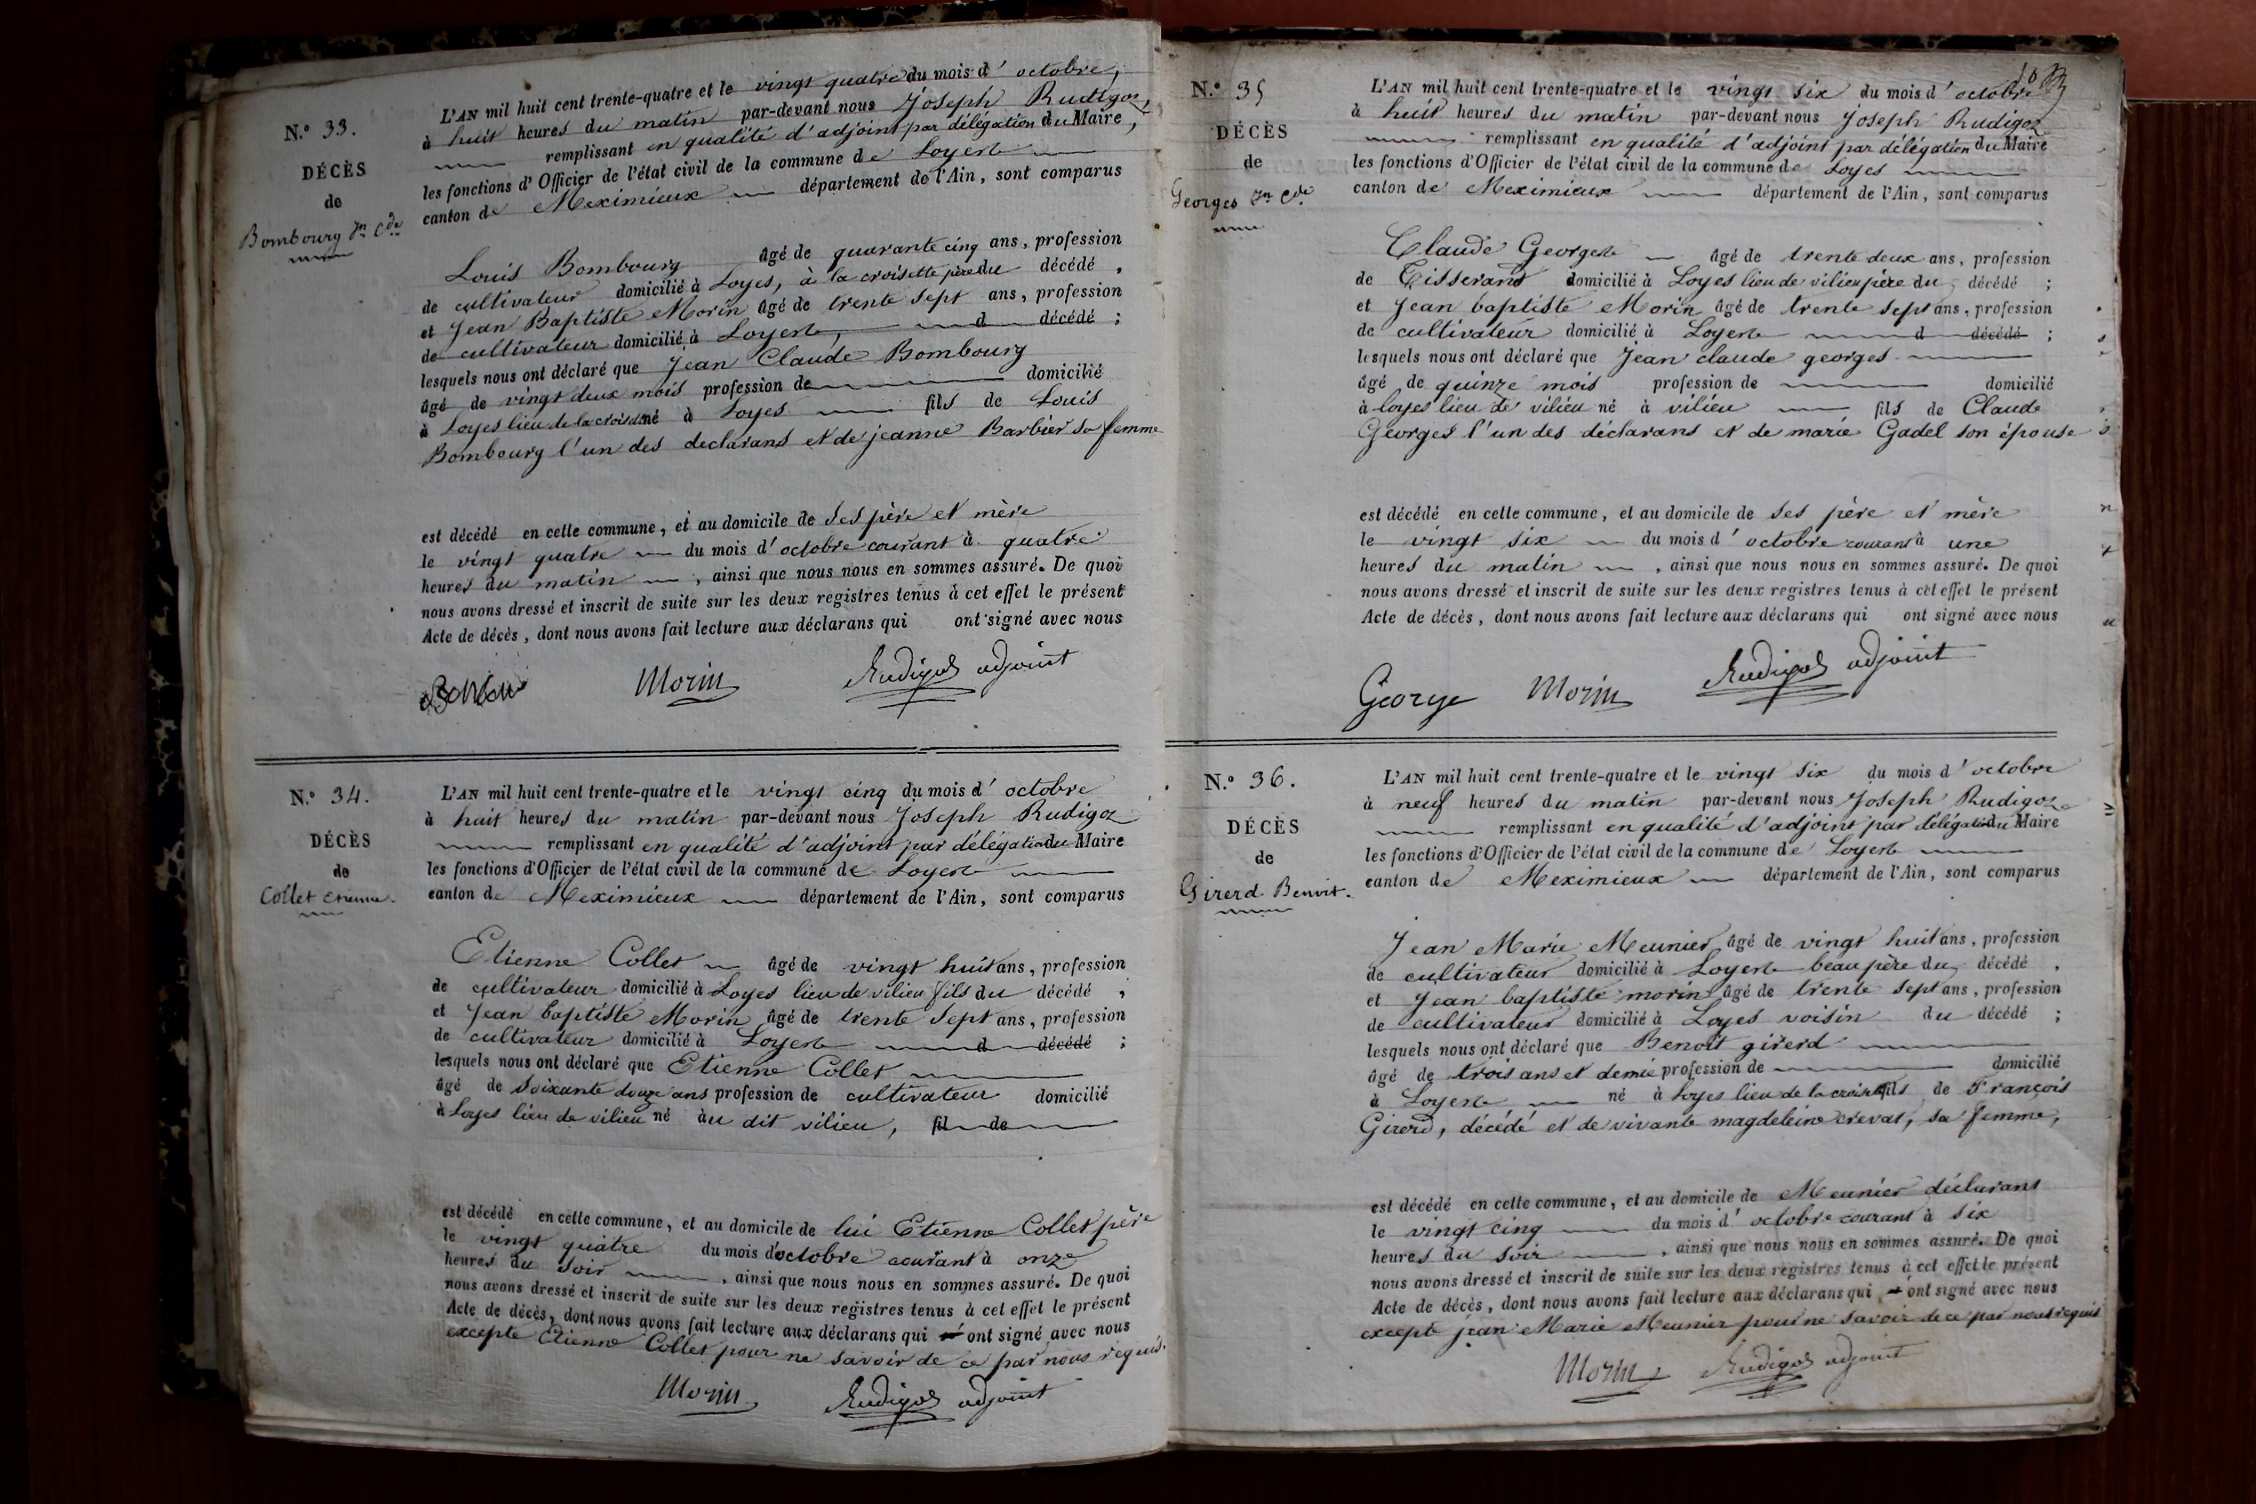 N.º 33.
DÉCÈS
de
Bombourg Jn Cde
L'AN mil huit cent trente-quatre et le vingt quatre du mois d'octobre,
à huit heures du matin par-devant nous Joseph Rudigoz,
remplissant en qualité d'adjoint par délégation du Maire,
les fonctions d'Officier de l'état civil de la commune de Loyes
canton de Meximieux département de l'Ain, sont comparus
Louis Bombourg âgé de quarante cinq ans, profession
de cultivateur domicilié à Loyes, à la croisette père du décédé,
et Jean Baptiste Morin âgé de trente sept ans, profession
de cultivateur domicilié à Loyes, d décédé ;
lesquels nous ont déclaré que Jean Claude Bombourg
âgé de vingt deux mois profession de domicilié
à Loyes lieu de la né à Loyes fils de Louis
Bombourg l'un des declarans et de jeanne Barbier sa femme
est décédé en cette commune, et au domicile de ses père et mère
le vingt quatre du mois d'octobre courant à quatre
heures du matin, ainsi que nous nous en sommes assuré. De quoi
nous avons dressé et inscrit de suite sur les deux registres tenus à cet effet le présent
Acte de décès, dont nous avons fait lecture aux déclarans qui ont signé avec nous
Morin Rudigoz adjoint
N.º 34.
DÉCÈS
de
Collet etienne.
L'AN mil huit cent trente-quatre et le vingt cinq du mois d'octobre
à huit heures du matin par-devant nous Joseph Rudigoz
remplissant en qualité d'adjoint par délégation du Maire
les fonctions d'Officier de l'état civil de la commune de Loyes
canton de Meximieux département de l'Ain, sont comparus
Etienne Collet âgé de vingt huit ans, profession
de cultivateur domicilié à Loyes lieu de vilieu fils du décédé,
et Jean baptiste Morin âgé de trente sept ans, profession
de cultivateur domicilié à Loyes d décédé ;
lesquels nous ont déclaré que Etienne Collet
âgé de soixante douze ans profession de cultivateur domicilié
à Loyes lieu de vilieu né au dit vilieu, fil de
est décédé en cette commune, et au domicile de lui Etienne Collet père
le vingt quatre du mois d'octobre courant à onze
heures du soir, ainsi que nous nous en sommes assuré. De quoi
nous avons dressé et inscrit de suite sur les deux registres tenus à cet effet le présent
Acte de décès, dont nous avons fait lecture aux déclarans qui ont signé avec nous
excepte Etienne Collet pour ne savoir de ce par nous requis.
Morin Rudigoz adjoint
N.º 35
DÉCÈS
de
Georges Jn Cde
L'AN mil huit cent trente-quatre et le vingt six du mois d'octobre
à huit heures du matin par-devant nous Joseph Rudigoz
remplissant en qualité d'adjoint par délégation du Maire
les fonctions d'Officier de l'état civil de la commune de Loyes
canton de Meximieux département de l'Ain, sont comparus
Claude Georges âgé de trente deux ans, profession
de Tisserand domicilié à Loyes lieu de vilieu père du décédé ;
et Jean baptiste Morin âgé de trente sept ans, profession
de cultivateur domicilié à Loyes d décédé ;
lesquels nous ont déclaré que Jean claude georges
âgé de quinze mois profession de domicilié
à loyes lieu de vilieu né à vilieu fils de Claude
Georges l'un des déclarans et de marie Gadel son épouse
est décédé en cette commune, et au domicile de ses père et mère
le vingt six du mois d'octobre courant à une
heures du matin, ainsi que nous nous en sommes assuré. De quoi
nous avons dressé et inscrit de suite sur les deux registres tenus à cet effet le présent
Acte de décès, dont nous avons fait lecture aux déclarans qui ont signé avec nous
George Morin Rudigoz adjoint
N.º 36.
DÉCÈS
de
Girerd Benoit.
L'AN mil huit cent trente-quatre et le vingt six du mois d'octobre
à neuf heures du matin par-devant nous Joseph Rudigoz
remplissant en qualité d'adjoint par délégation du Maire
les fonctions d'Officier de l'état civil de la commune de Loyes
canton de Meximieux département de l'Ain, sont comparus
Jean Marie Meunier âgé de vingt huit ans, profession
de cultivateur domicilié à Loyes beau père du décédé,
et Jean baptiste morin âgé de trente sept ans, profession
de cultivateur domicilié à Loyes voisin du décédé ;
lesquels nous ont déclaré que Benoit girerd
âgé de trois ans et demie profession de domicilié
à Loyes né à Loyes lieu de la fils de François
Girerd, décédé et de vivante magdeleine crevat, sa femme,
est décédé en cette commune, et au domicile de Meunier déclarant
le vingt cinq du mois d'octobre courant à six
heures du soir, ainsi que nous nous en sommes assuré. De quoi
nous avons dressé et inscrit de suite sur les deux registres tenus à cet effet le présent
Acte de décès, dont nous avons fait lecture aux déclarans qui ont signé avec nous
excepte jean Marie Meunier pour ne savoir de ce par nous requis
Morin Rudigoz adjoint